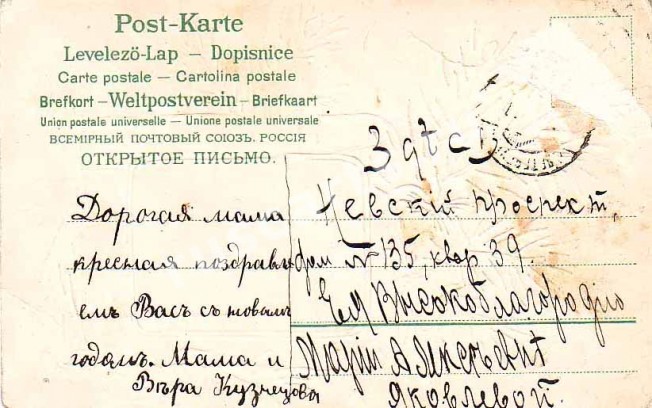 Post-Karte
Levelező-Lap — Dopisnice
Carte postale — Cartolina postale
Brefkort — Weltpostverein — Briefkaart
Union postale universelle — Unione postale universale
ВСЕМІРНЫЙ ПОЧТОВЫЙ СОЮЗЪ. РОССІЯ
ОТКРЫТОЕ ПИСЬМО.
Здѣсь
Невскій проспект,
дом № 135, квар 39.
Ея Высокоблагородію
Маріи Алексѣевнѣ
Яковлевой.
Дорогая мама
кресная поздравля
емъ Васъ съ новымъ
годомъ. Мама и
Вѣра Кузнецова